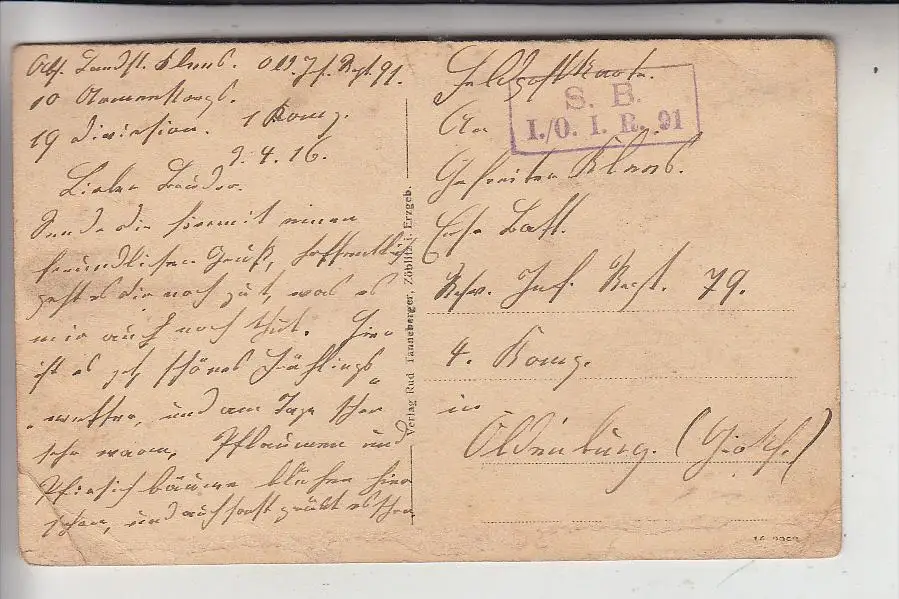 Abs. Landst. Klees. Old. Jf. Regt. 91.
10 Armeekorps.
19 Division. 1 Komp.
9.4.16.
Lieber Bruder.
Sende dir hiermit einen
freundlichen Gruß, hoffentlich
geht es dir noch gut, was es
mir auch noch thut. Hier
ist es jetz schönes Frühlings
wetter, und am Tage schon
sehr warm, Pflaumen und
Pfirsichbäume blühen hier
schon, und auch sonst grünt es schon
Verlag Rud Tanneberger, Zöblitz i. Erzgeb.
Feldpostkarte.
S. B.
I./O. I. R. 91
An
Gefreiten Klees.
Ers. Batl.
Resv. Inf. Regt. 79.
4. Komp.
in
Oldenburg. (Grßh.)